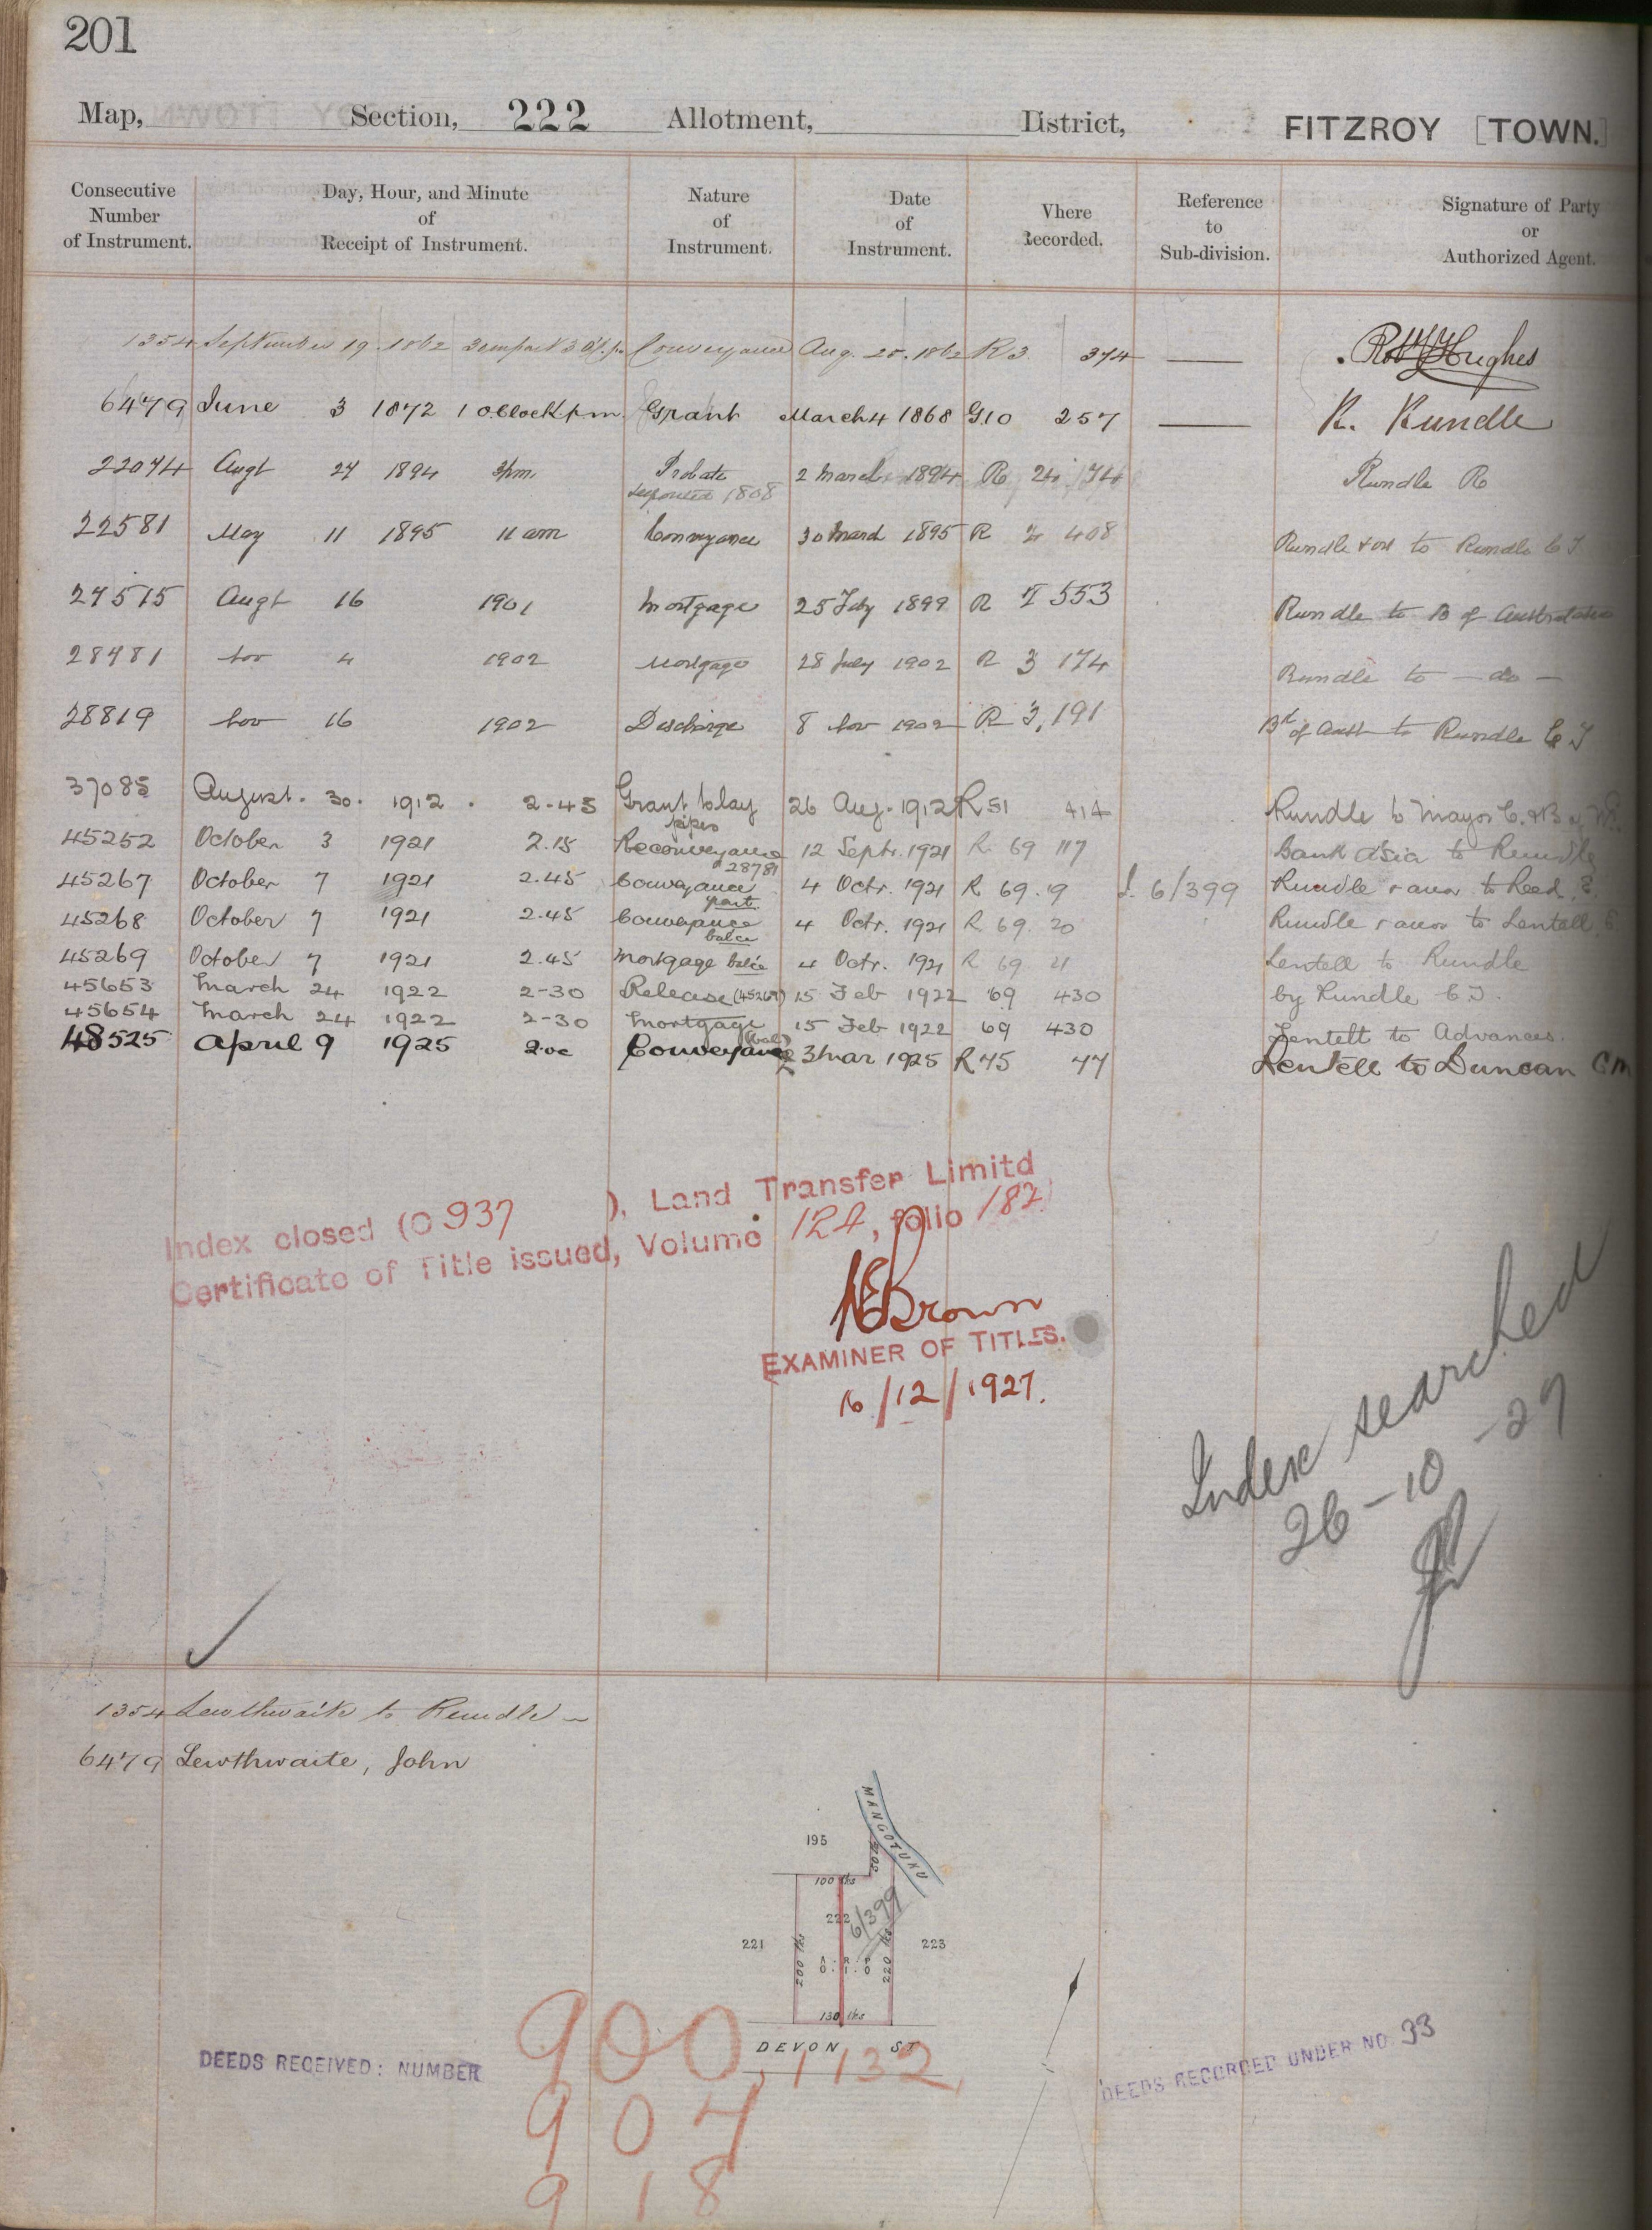 201
Map, Section, 222 Allotment, District, FITZROY [TOWN.]
Consecutive Number of Instrument.
Day, Hour, and Minute of Receipt of Instrument.
Nature of Instrument.
Date of Instrument.
Where Recorded.
Reference to Sub-division.
Signature of Party or Authorized Agent.
1354 September 19 1862 3 o'c. p.m. Conveyance Aug. 1862 R 3 374 — Hughes
6479 June 3 1872 1 O.Clock p.m. Grant March 4 1868 G.10 257 — R. Rundle
22074 Augt 27 1894 3pm Probate 2 March 1894 R 24 74 Rundle R
deposited 1808
22581 May 11 1895 11 am Conveyance 30 March 1895 R 408 Rundle to Rundle C J
27515 Augt 16 1901 Mortgage 25 July 1899 R 553 Rundle to B of Australasia
28481 Nov 4 1902 Mortgage 28 July 1902 R 3 174 Rundle to — do —
28819 Nov 16 1902 Discharge 8 Nov 1902 R 3, 191 Bk of Aust to Rundle C J
37085 August. 30. 1912. 2-45 Grant to lay pipes 26 Aug. 1912 R 51 414 Rundle to Mayor C. & B of
45252 October 3 1921 2.15 Reconveyance 28781 12 Septr. 1921 R 69 117 Bank A'sia to Rundle
45267 October 7 1921 2.45 Conveyance part. 4 Octr. 1921 R 69. 19 d. 6/399 Rundle & anor to Reed, E.
45268 October 7 1921 2.45 Conveyance balce 4 Octr. 1921 R 69. 20 Rundle & anor to Lentell
45269 October 7 1921 2.45 Mortgage balce 4 Octr. 1921 R 69 21 Lentell to Rundle
45653 March 24 1922 2-30 Release (45269) 15 Feb 1922 69 430 by Rundle C J.
45654 March 24 1922 2-30 Mortgage 15 Feb 1922 69 430 Lentell to Advances.
48525 April 9 1925 2.oc Conveyance (bal) 3 Mar 1925 R 45 47 Lentell to Duncan C M
Index closed (C 937 ), Land Transfer Limitd
Certificate of Title issued, Volume 124, folio 182
Brown
EXAMINER OF TITLES.
16/12/1927.
Index searched
26-10-27
1354 Lewthwaite to Rundle —
6479 Lewthwaite, John
MANGOTUKU
195
100 lks
222
6/399
221
223
200 lks
A. R. P.
0. 1. 0
220 lks
130 lks
DEVON ST
DEEDS RECEIVED: NUMBER 900, 1132,
907
918
DEEDS RECORDED UNDER NO 33